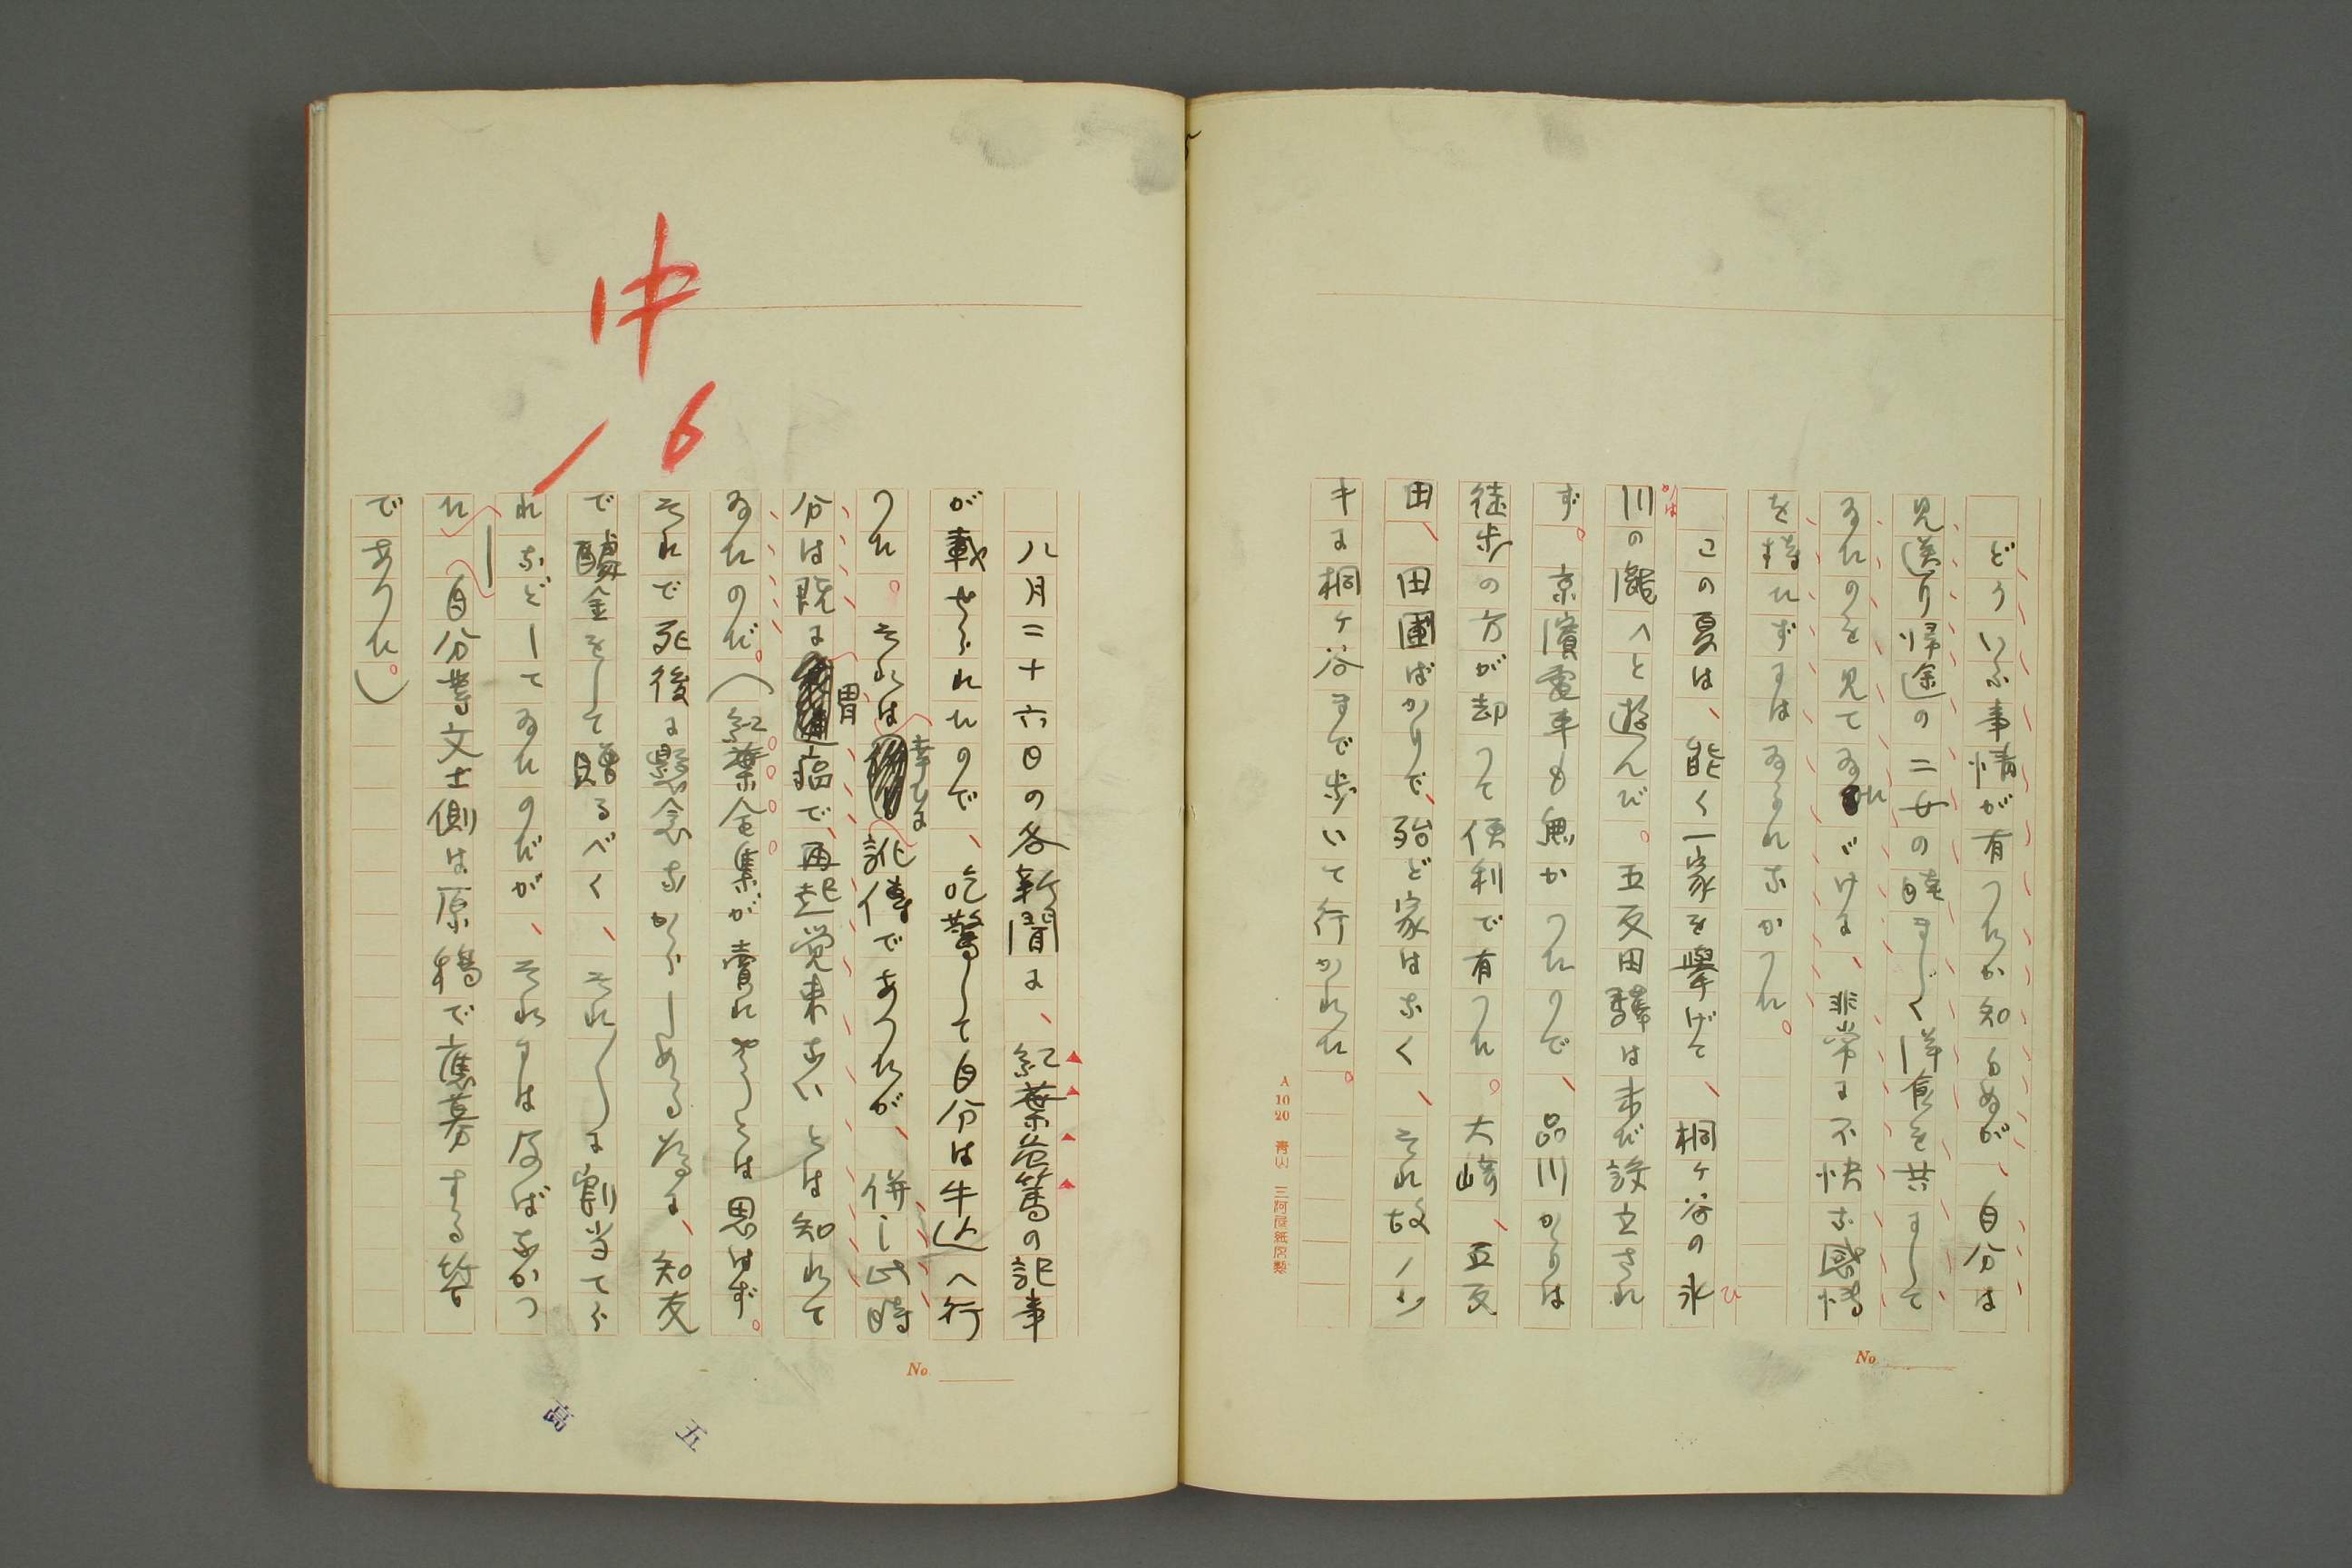 どういふ事情が有つたか知らぬが、自分は
見送り帰途の二女の睦ましく洋食を共にして
ゐたのを見てゐただけに、非常に不快な感情
を持たずにはゐられなかつた。
この夏は、能く一家を挙げて、桐ヶ谷の氷
ひ
川の瀧へと遊んだ。五反田驛は未だ設立され
かは
ず。京濱電車も無かつたので、品川からは
徒歩の方が却つて便利で有つた。大崎、五反
田、田圃ばかりで、殆ど家はなく、それ故ノン
キに桐ヶ谷まで歩いて行かれた。
A 10 20 青山 三河屋紙店製
No
中
16
八月二十六日の各新聞に、紅葉危篤の記事
が載せられたので、吃驚して自分は牛込へ行
つた。それは幸ひに訛傳であつたが、併し此時
分は既に胃癌で、再起覚束ないとは知れて
ゐたのだ。(紅葉全集が賣れやうとは思はず。
それで死後に懸念なからしめる為に、知友
で醵金をして贈るべく、それ〲に割当てら
れなどしてゐたのだが、それには及ばなかつ
た 自分等文士側は原稿で應募する筈
であつた。)
No
富
五